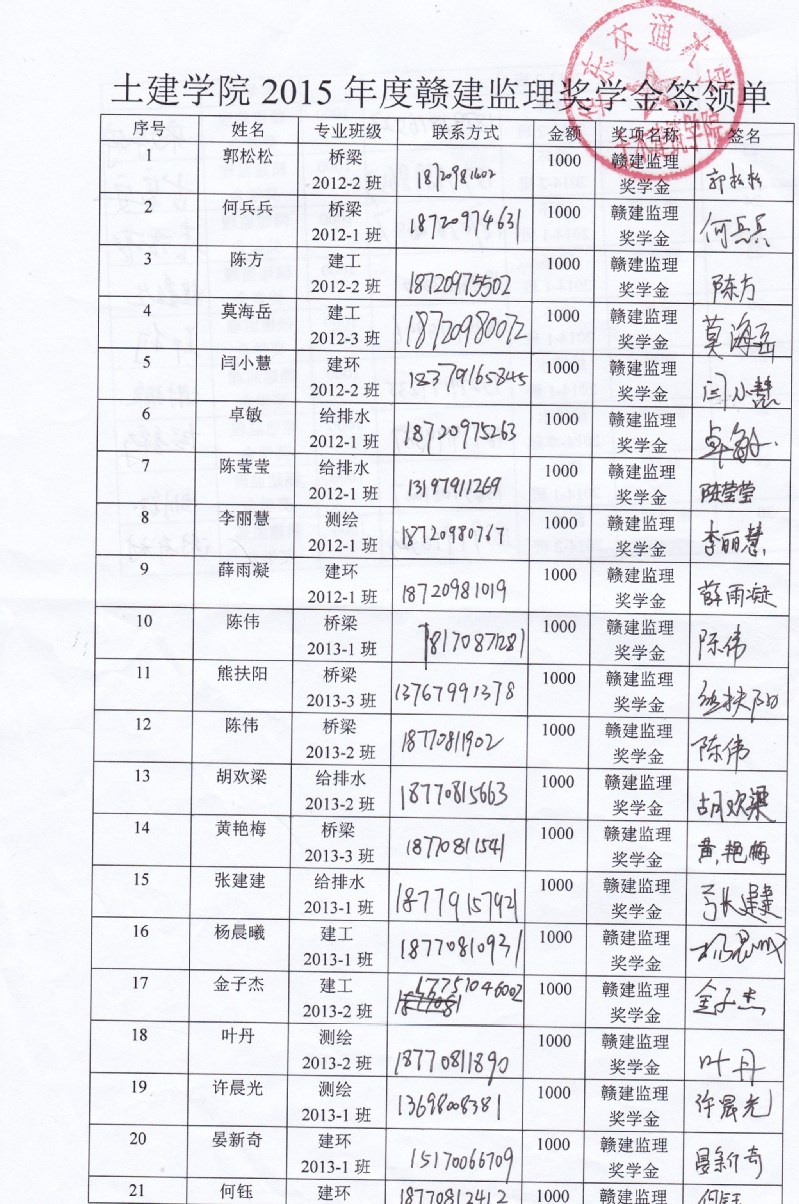 华东交通大学
土木建筑学院
土建学院 2015 年度赣建监理奖学金签领单
序号 姓名 专业班级 联系方式 金额 奖项名称 签名
1 郭松松 桥梁 2012-2 班 18720981602 1000 赣建监理 奖学金 郭松松
2 何兵兵 桥梁 2012-1 班 18720974631 1000 赣建监理 奖学金 何兵兵
3 陈方 建工 2012-2 班 18720975502 1000 赣建监理 奖学金 陈方
4 莫海岳 建工 2012-3 班 18720980072 1000 赣建监理 奖学金 莫海岳
5 闫小慧 建环 2012-2 班 1000 赣建监理 奖学金 闫小慧
6 卓敏 给排水 2012-1 班 18720975263 1000 赣建监理 奖学金 卓敏
7 陈莹莹 给排水 2012-1 班 13197911269 1000 赣建监理 奖学金 陈莹莹
8 李丽慧 测绘 2012-1 班 18720980767 1000 赣建监理 奖学金 李丽慧
9 薛雨凝 建环 2012-1 班 18720981019 1000 赣建监理 奖学金 薛雨凝
10 陈伟 桥梁 2013-1 班 18170871281 1000 赣建监理 奖学金 陈伟
11 熊扶阳 桥梁 2013-3 班 13767991378 1000 赣建监理 奖学金 熊扶阳
12 陈伟 桥梁 2013-2 班 18770811902 1000 赣建监理 奖学金 陈伟
13 胡欢梁 给排水 2013-2 班 18770815663 1000 赣建监理 奖学金 胡欢梁
14 黄艳梅 桥梁 2013-3 班 18770811541 1000 赣建监理 奖学金 黄艳梅
15 张建建 给排水 2013-1 班 18779157921 1000 赣建监理 奖学金 张建建
16 杨晨曦 建工 2013-1 班 18770810931 1000 赣建监理 奖学金 杨晨曦
17 金子杰 建工 2013-2 班 17751046002 1000 赣建监理 奖学金 金子杰
18 叶丹 测绘 2013-2 班 18770811890 1000 赣建监理 奖学金 叶丹
19 许晨光 测绘 2013-1 班 13698008381 1000 赣建监理 奖学金 许晨光
20 晏新奇 建环 2013-1 班 15170066709 1000 赣建监理 奖学金 晏新奇
21 何钰 建环 18770812412 1000 赣建监理 何钰